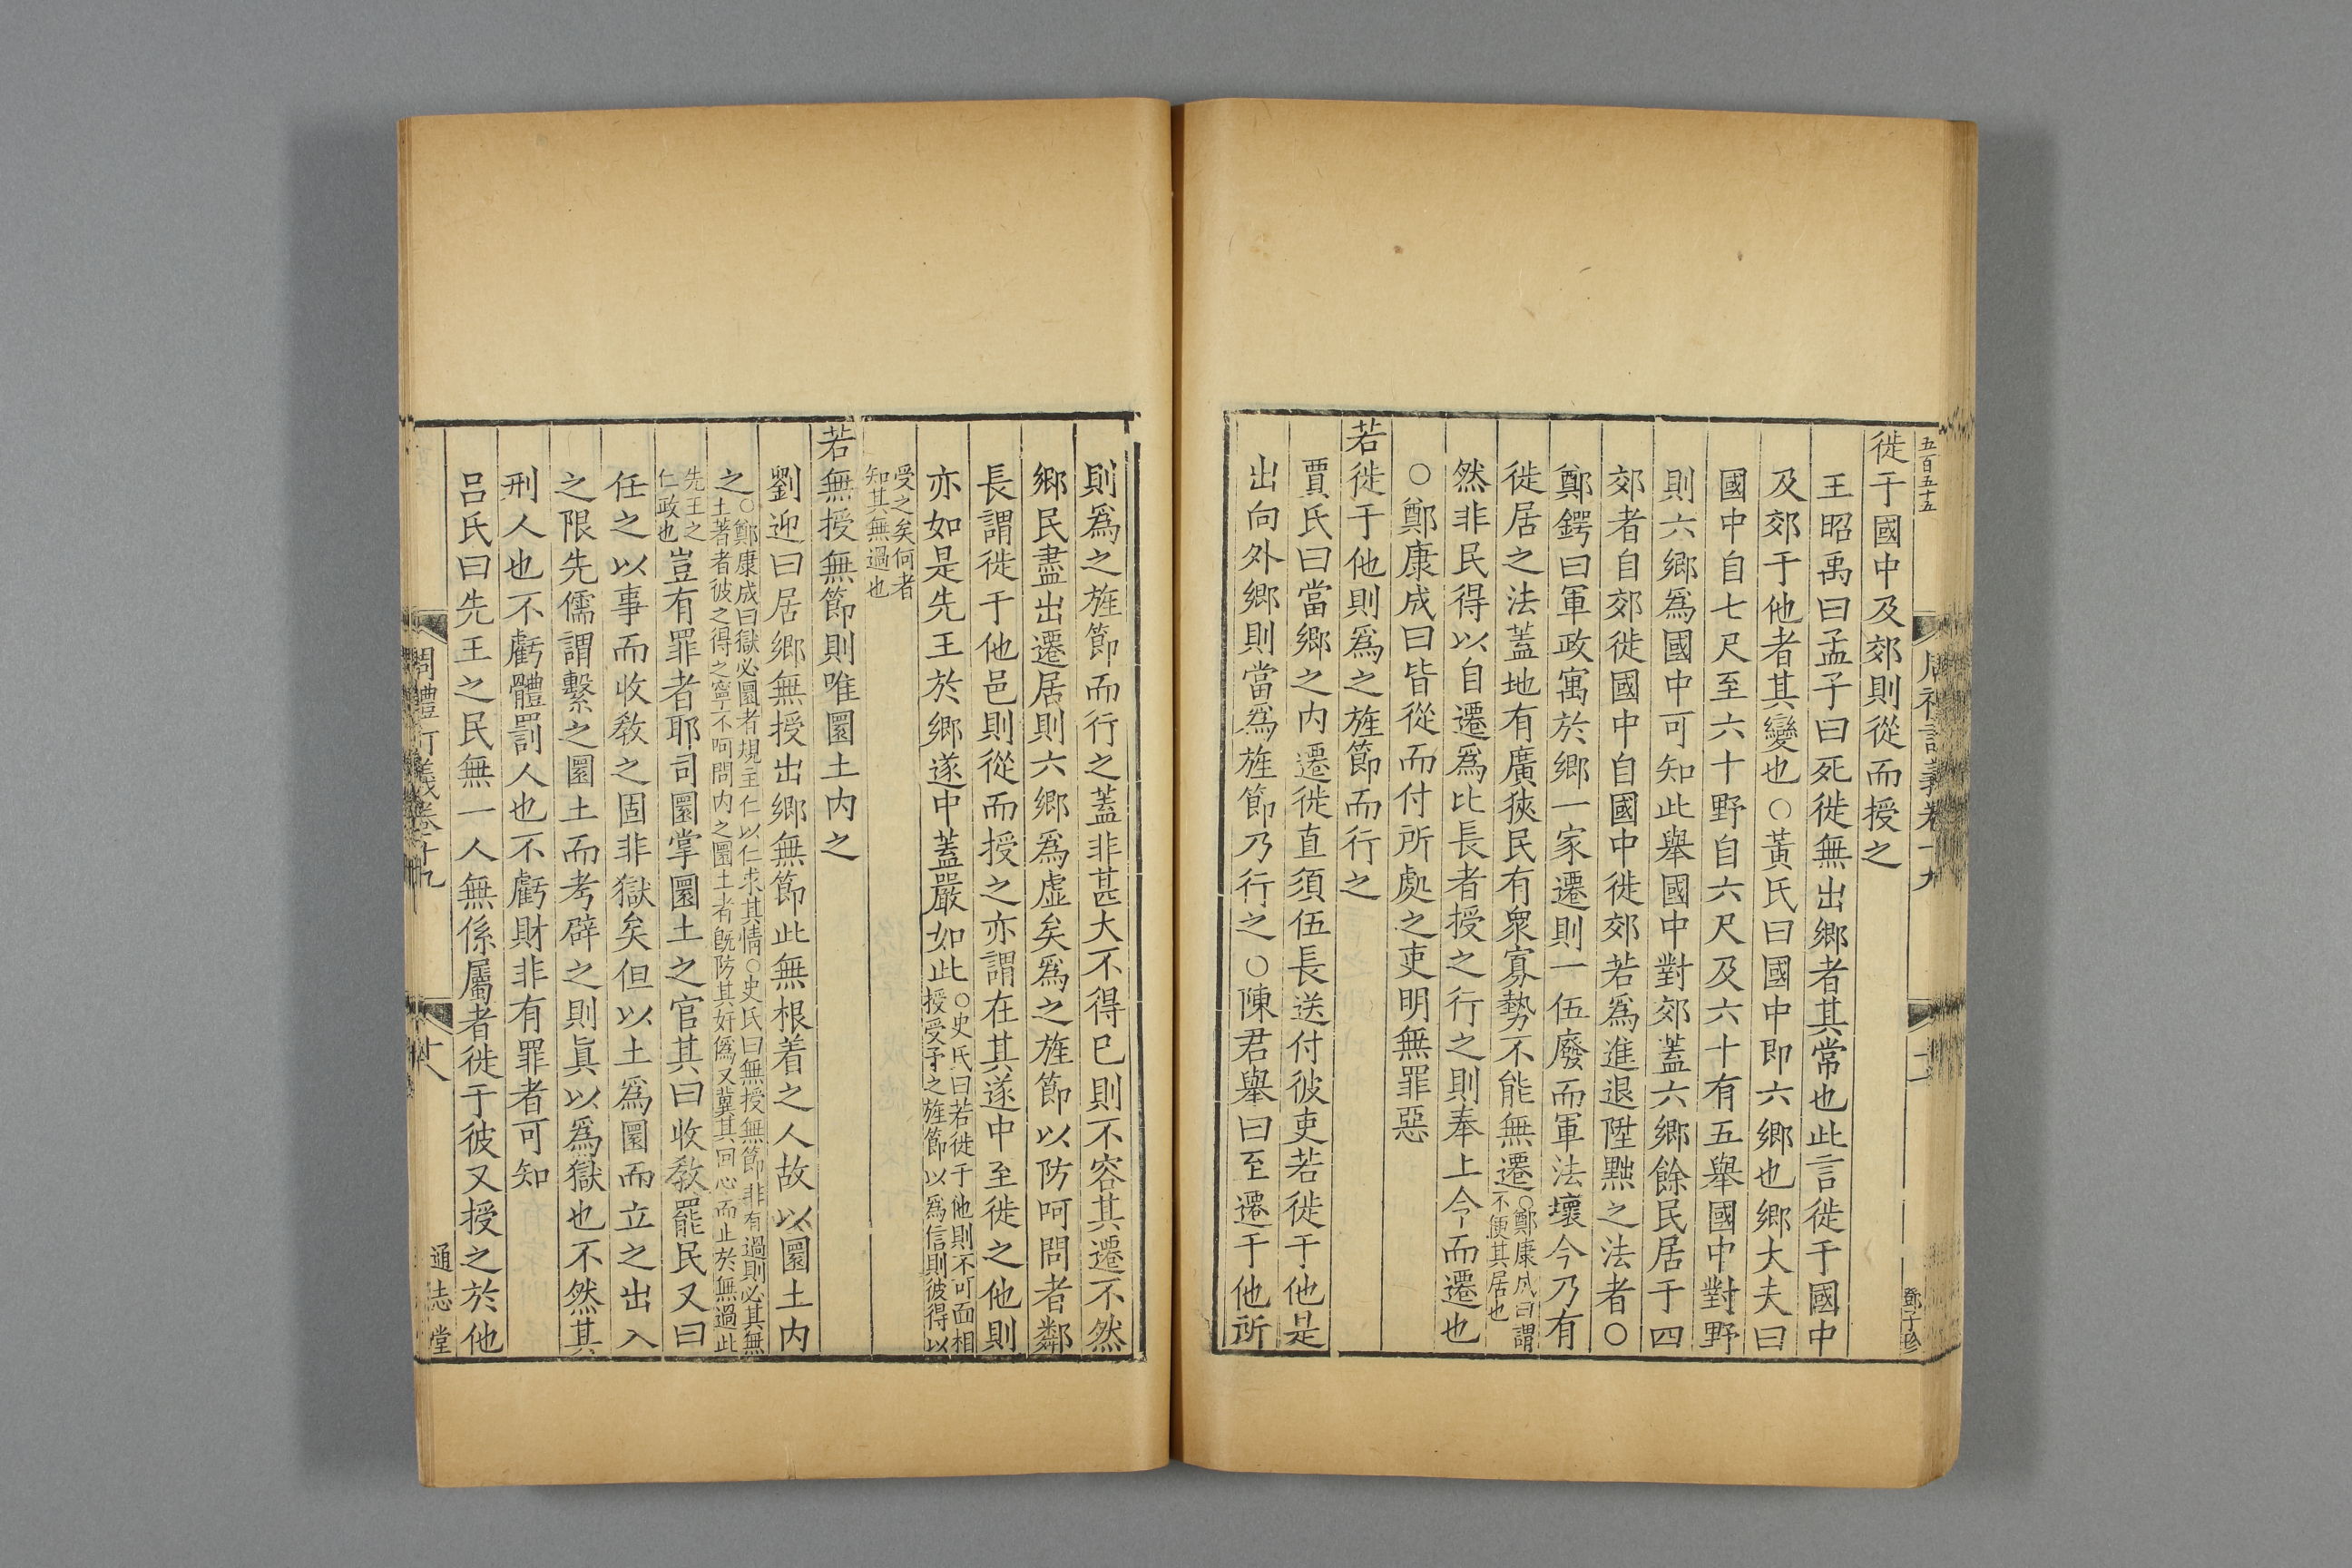 五百五十五
鄧子珍
徙于國中及郊則從而授之
王昭禹曰孟子曰死徙無出鄉者其常也此言徙于國中
及郊于他者其變也○黃氏曰國中即六鄉也鄉大夫曰
國中自七尺至六十野自六尺及六十有五舉國中對野
則六鄉爲國中可知此舉國中對郊蓋六鄉餘民居于四
郊者自郊徙國中自國中徙郊若爲進退陞黜之法者○
鄭鍔曰軍政寓於鄉一家遷則一伍廢而軍法壞今乃有
徙居之法蓋地有廣狹民有衆寡勢不能無遷○鄭康成曰謂
不便其居也
然非民得以自遷爲比長者授之行之則奉上令而遷也
○鄭康成曰皆從而付所處之吏明無罪惡
若徙于他則爲之旌節而行之
賈氏曰當鄉之内遷徙直須伍長送付彼吏若徙于他是
出向外鄉則當爲旌節乃行之○陳君舉曰至遷于他所
則爲之旌節而行之蓋非甚大不得已則不容其遷不然
鄉民盡出遷居則六鄉爲虛矣爲之旌節以防呵問者鄰
長謂徙于他邑則從而授之亦謂在其遂中至徙之他則
亦如是先王於鄉遂中蓋嚴如此○史氏曰若徙于他則不可面相
授受予之旌節以爲信則彼得以
受之矣何者
知其無過也
若無授無節則唯圜土内之
劉迎曰居鄉無授出鄉無節此無根着之人故以圜土内
之○鄭康成曰獄必圜者規主仁以仁求其情○史氏曰無授無節非有過則必其無
土著者彼之得之寧不呵問内之圜土者既防其奸僞又冀其回心而止於無過此
先王之
仁政也豈有罪者耶司圜掌圜土之官其曰收教罷民又曰
任之以事而收教之固非獄矣但以土爲圜而立之出入
之限先儒謂繫之圜土而考辟之則眞以爲獄也不然其
刑人也不虧體罰人也不虧財非有罪者可知
吕氏曰先王之民無一人無係屬者徙于彼又授之於他
十八
通志堂